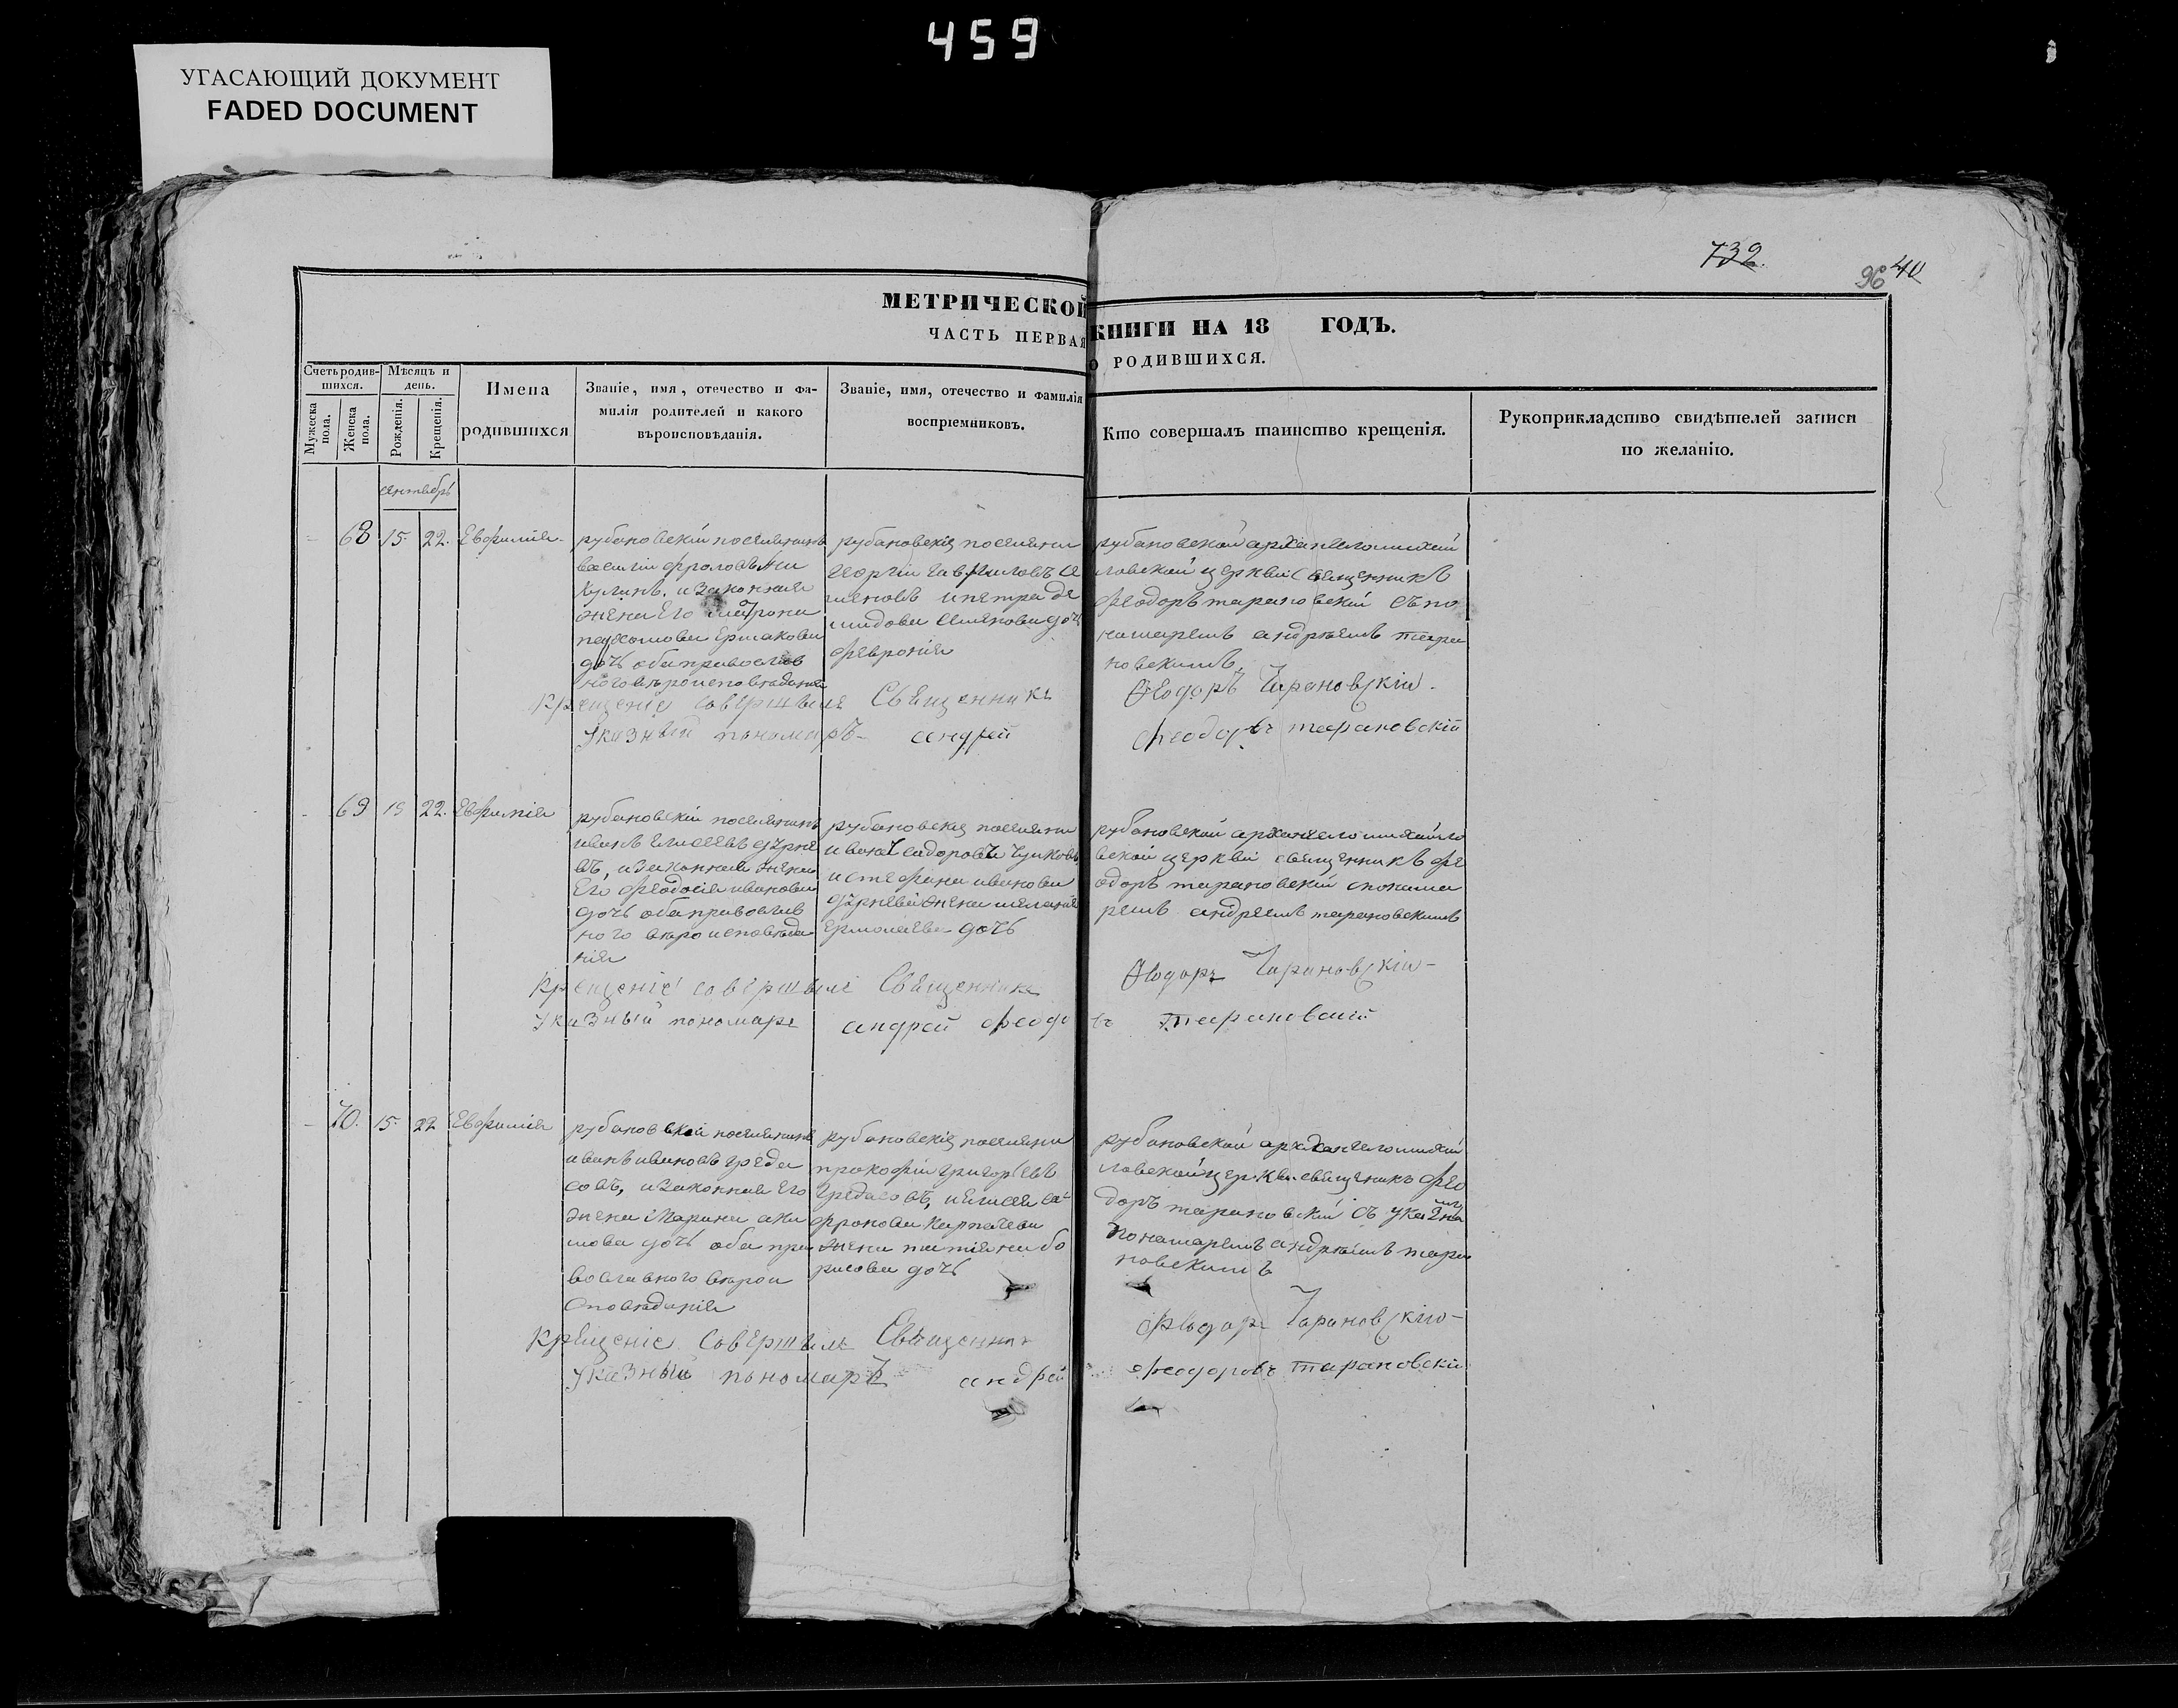 459
УГАСАЮЩИЙ ДОКУМЕНТ
FADED DOCUMENT
732.
96 40
МЕТРИЧЕСКОЙ КНИГИ НА 18 ГОДЪ.
ЧАСТЬ ПЕРВАЯ О РОДИВШИХСЯ.
Счетъ родив-
шихся.
Мужеска
пола.
Женска
пола.
Мѣсяцъ и
день.
Рожденія.
Крещенія.
Имена
родившихся
Званіе, имя, отечество и фа-
милія родителей и какого
вѣроисповѣданія.
Званіе, имя, отечество и фамилія
воспріемниковъ.
Кто совершалъ таинство крещенія.
Рукоприкладство свидѣтелей записи
по желанію.
сентябрь
68 15 22. Евфимія
рубановскій поселянинъ
василій фроловъ
и законная
жена Его
Ермакова
дочь оба православ
ного вѣроисповѣданія
рубановскія поселяни
георгій
и петра де
мидова семенова дочь
феврония
рубановской архангеломихаи
ловской церкви священникъ
феодоръ тарановскій съ по
намаремъ андреемъ тара
новскимъ.
Крещеніе совершилъ Священникъ Феодоръ Тарановскій.
Указный пономарь андрей феодоровъ тарановскій
69 15 22. Евфимія
рубановскій поселянинъ
иванъ Елисеевъ
въ, и законная жена
Его феодосія иванова
дочь оба православ
ного вѣроисповѣда
нія
рубановскія поселяни
иванъ сидоровъ
и стефана иванова
жена меланія
ермолаева дочь
рубановской архангеломихаило
вской церкви священникъ фе
одоръ тарановскій спонама
ремъ андреемъ тарановскимъ
Крещеніе совершилъ Священникъ Феодоръ Тарановскій
Указный пономарь андрей феодоровъ тарановскій
70. 15. 22 Евфимія
рубановскій поселянинъ
иванъ ивановъ греда
совъ, и законная Его
жена Марина аки
мова дочь оба пра
вославного вѣрои
споведанія
рубановскія поселяни
прокофій григорьевъ
Гредасовъ, и елисея са
фронова
жена татіяна бо
рисова дочь
рубановской архангеломихаи
ловской церкви священикъ фео
доръ тарановскій съ указны
понамаремъ андреемъ тара
новскимъ
Крещеніе совершилъ Священникъ Феодоръ Тарановскій
Указный пономарь андрей феодоровъ тарановскій